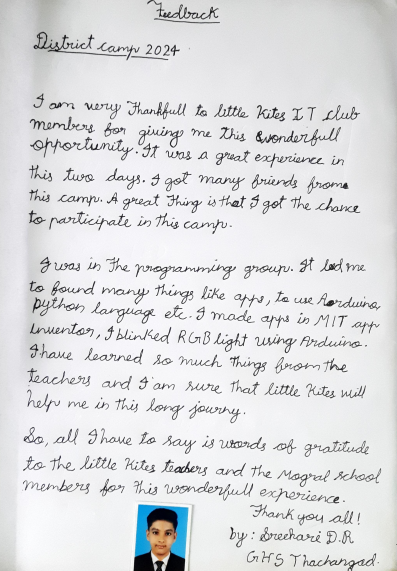 Feedback
District camp 2024
I am very Thankfull to little Kites IT club
members for giving me this wonderfull
opportunity. It was a great experience in
this two days. I got many friends from
this camp. A great Thing is that I got the chance
to participate in this camp.
I was in The programming group. It led me
to found many things like apps, to use Aarduino,
python language etc. I made apps in MIT app
inventor, I blinked RGB light using Arduino.
I have learned so much things from the
teachers and I am sure that little Kites will
help me in this long journy.
So, all I have to say is words of gratitude
to the little Kites teachers and the Mogral school
members for this wonderfull experience.
Thank you all!
by: Sreehari D.R
GHS Thachangad.